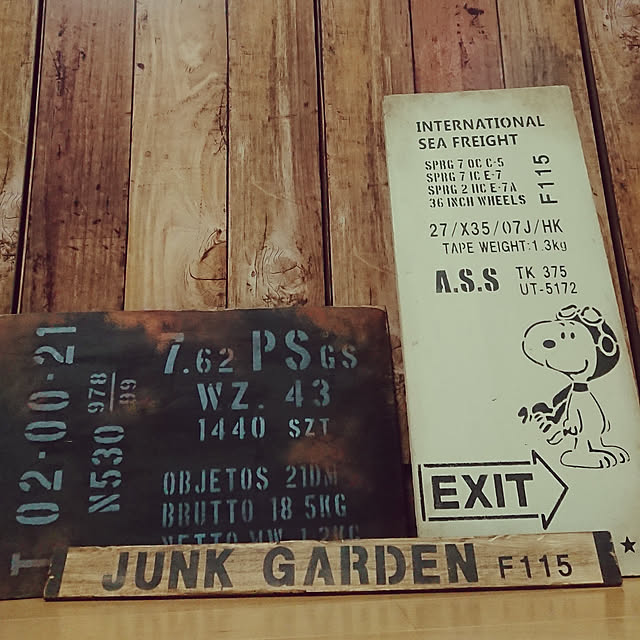 INTERNATIONAL
SEA FREIGHT
SPRG 7 OC C-5
SPRG 7 IC E-7
SPRG 2 IIC E-7A
36 INCH WHEELS
F115
27/X35/07J/HK
TAPE WEIGHT:1.3kg
A.S.S
TK 375
UT-5172
EXIT
T 02-00-21
N530 978/99
7.62 PSGS
WZ. 43
1440 SZT
OBJETOS 21DM
BRUTTO 18 5KG
NETTO MW 1.2KG
JUNK GARDEN F115